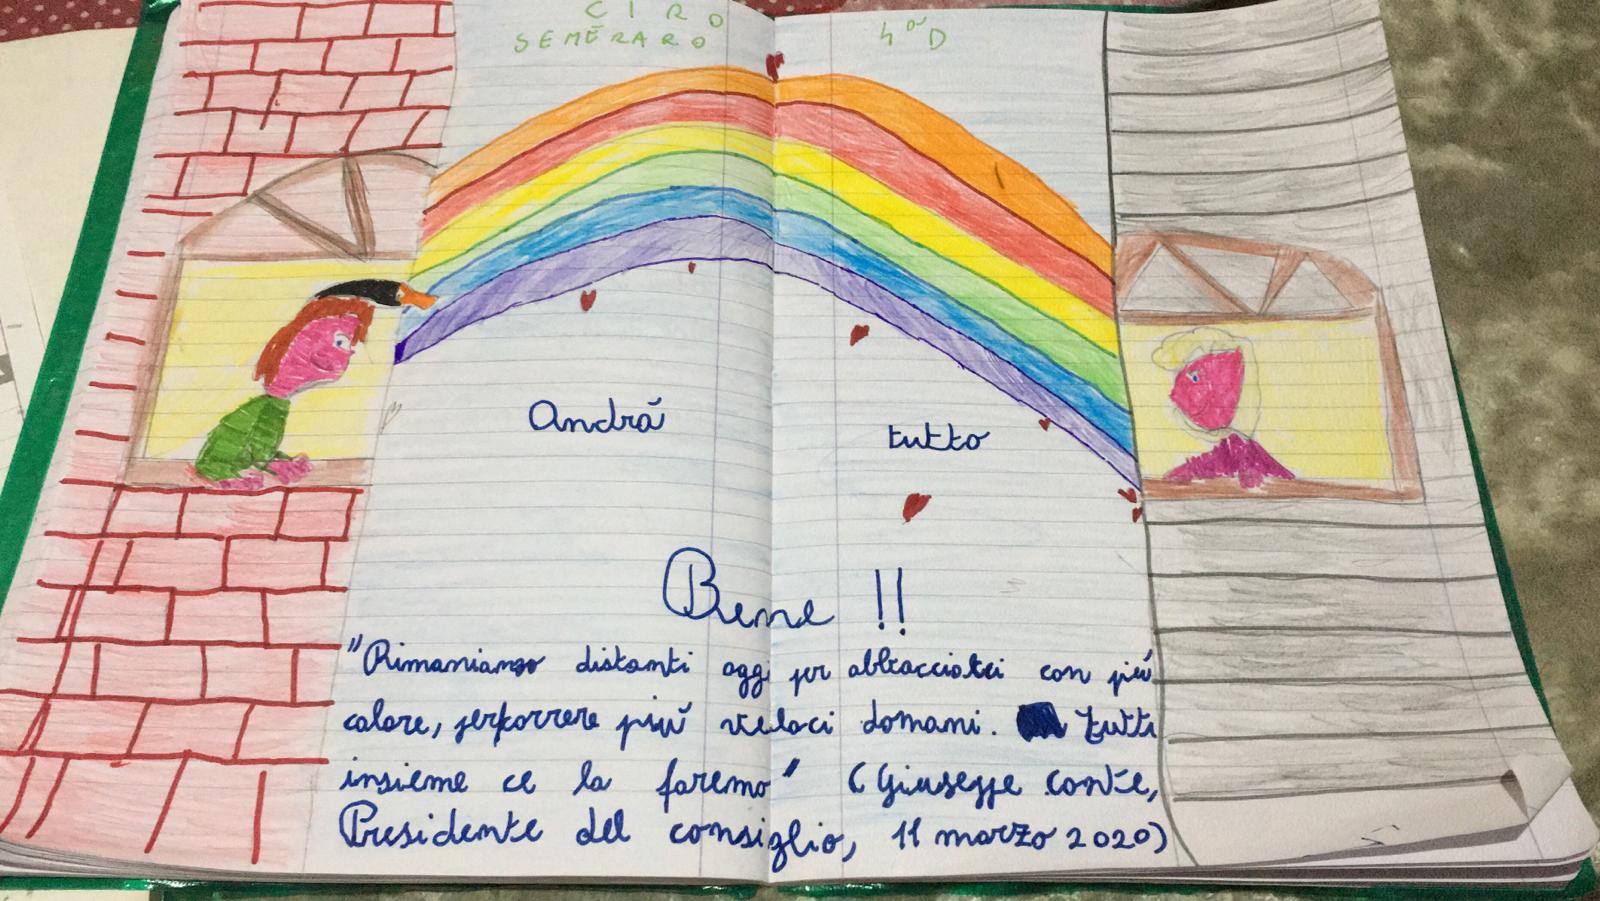 CIRO
SEMERARO
4°D
Andrá
tutto
Bene !!
"Rimaniamo distanti oggi per abbracciarci con piú
calore, per correre piú veloci domani. tutti
insieme ce la faremo" (Giuseppe conte,
Presidente del consiglio, 11 marzo 2020)